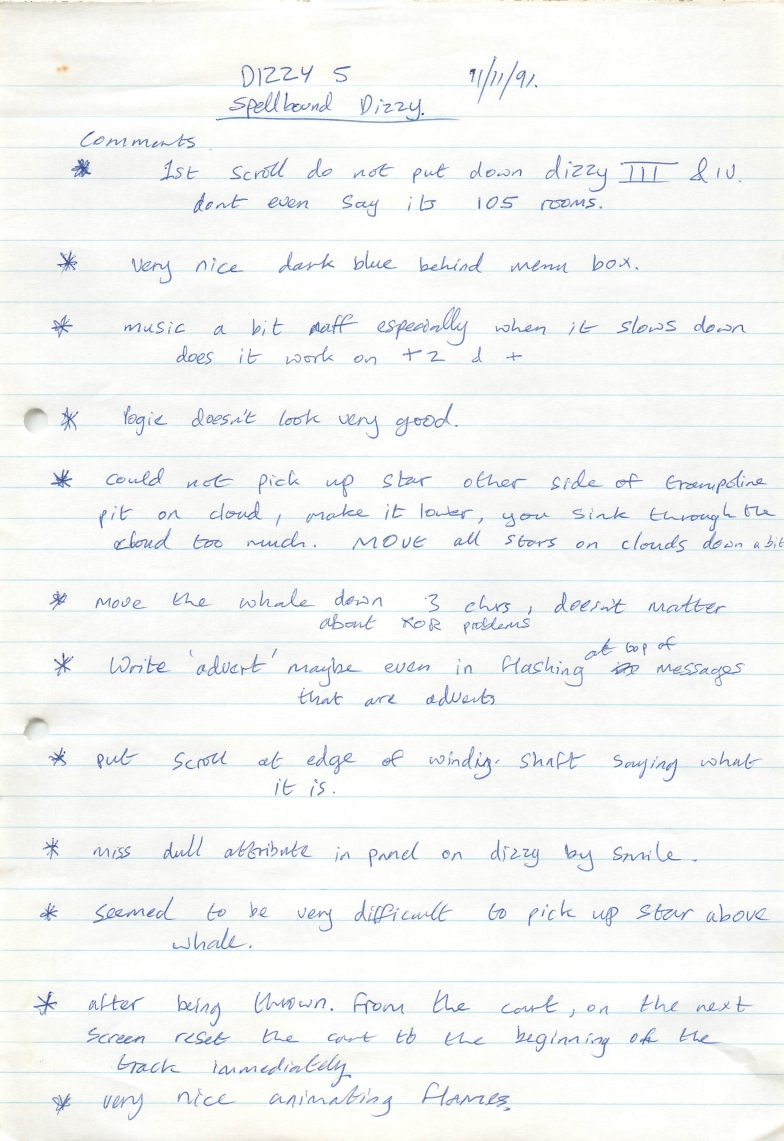 DIZZY 5 11/11/91.
Spellbound Dizzy.
Comments.
* 1st scroll do not put down dizzy III & IV.
dont even say its 105 rooms.
* very nice dark blue behind menu box.
* music a bit naff especially when it slows down
does it work on +2 & +
* logic doesn't look very good.
* could not pick up star other side of trampoline
pit on cloud, make it lower, you sink through the
cloud too much. MOVE all stars on clouds down a bit
* move the whale down 3 chrs, doesn't matter
about XOR problems
at top of
* Write 'advert' maybe even in flashing messages
that are adverts
* put scroll at edge of winding shaft saying what
it is.
* miss dull attribute in panel on dizzy by smile.
* seemed to be very difficult to pick up star above
whale.
* after being thrown. from the cart, on the next
screen reset the cart to the beginning of the
track immediately
* very nice animating flames.